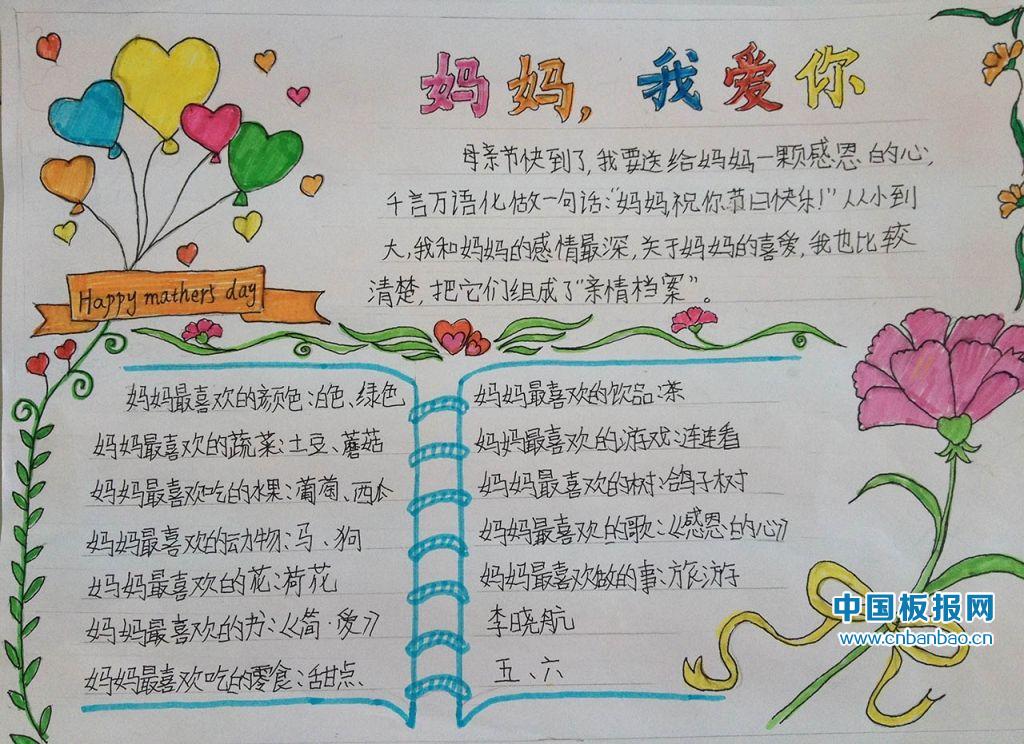 妈妈，我爱你
母亲节快到了,我要送给妈妈一颗感恩的心,
千言万语化做一句话:“妈妈,祝你节日快乐!”从小到
大,我和妈妈的感情最深,关于妈妈的喜爱,我也比较
清楚,把它们组成了“亲情档案”。
Happy mathers day
妈妈最喜欢的颜色:白色、绿色
妈妈最喜欢的蔬菜:土豆、蘑菇
妈妈最喜欢吃的水果:葡萄、西瓜
妈妈最喜欢的动物:马、狗
妈妈最喜欢的花:荷花
妈妈最喜欢的书:《简·爱》
妈妈最喜欢吃的零食:甜点
妈妈最喜欢的饮品:茶
妈妈最喜欢的游戏:连连看
妈妈最喜欢的树:鸽子树
妈妈最喜欢的歌:《感恩的心》
妈妈最喜欢做的事:旅游
李晓航
五、六
中国板报网
www.cnbanbao.cn